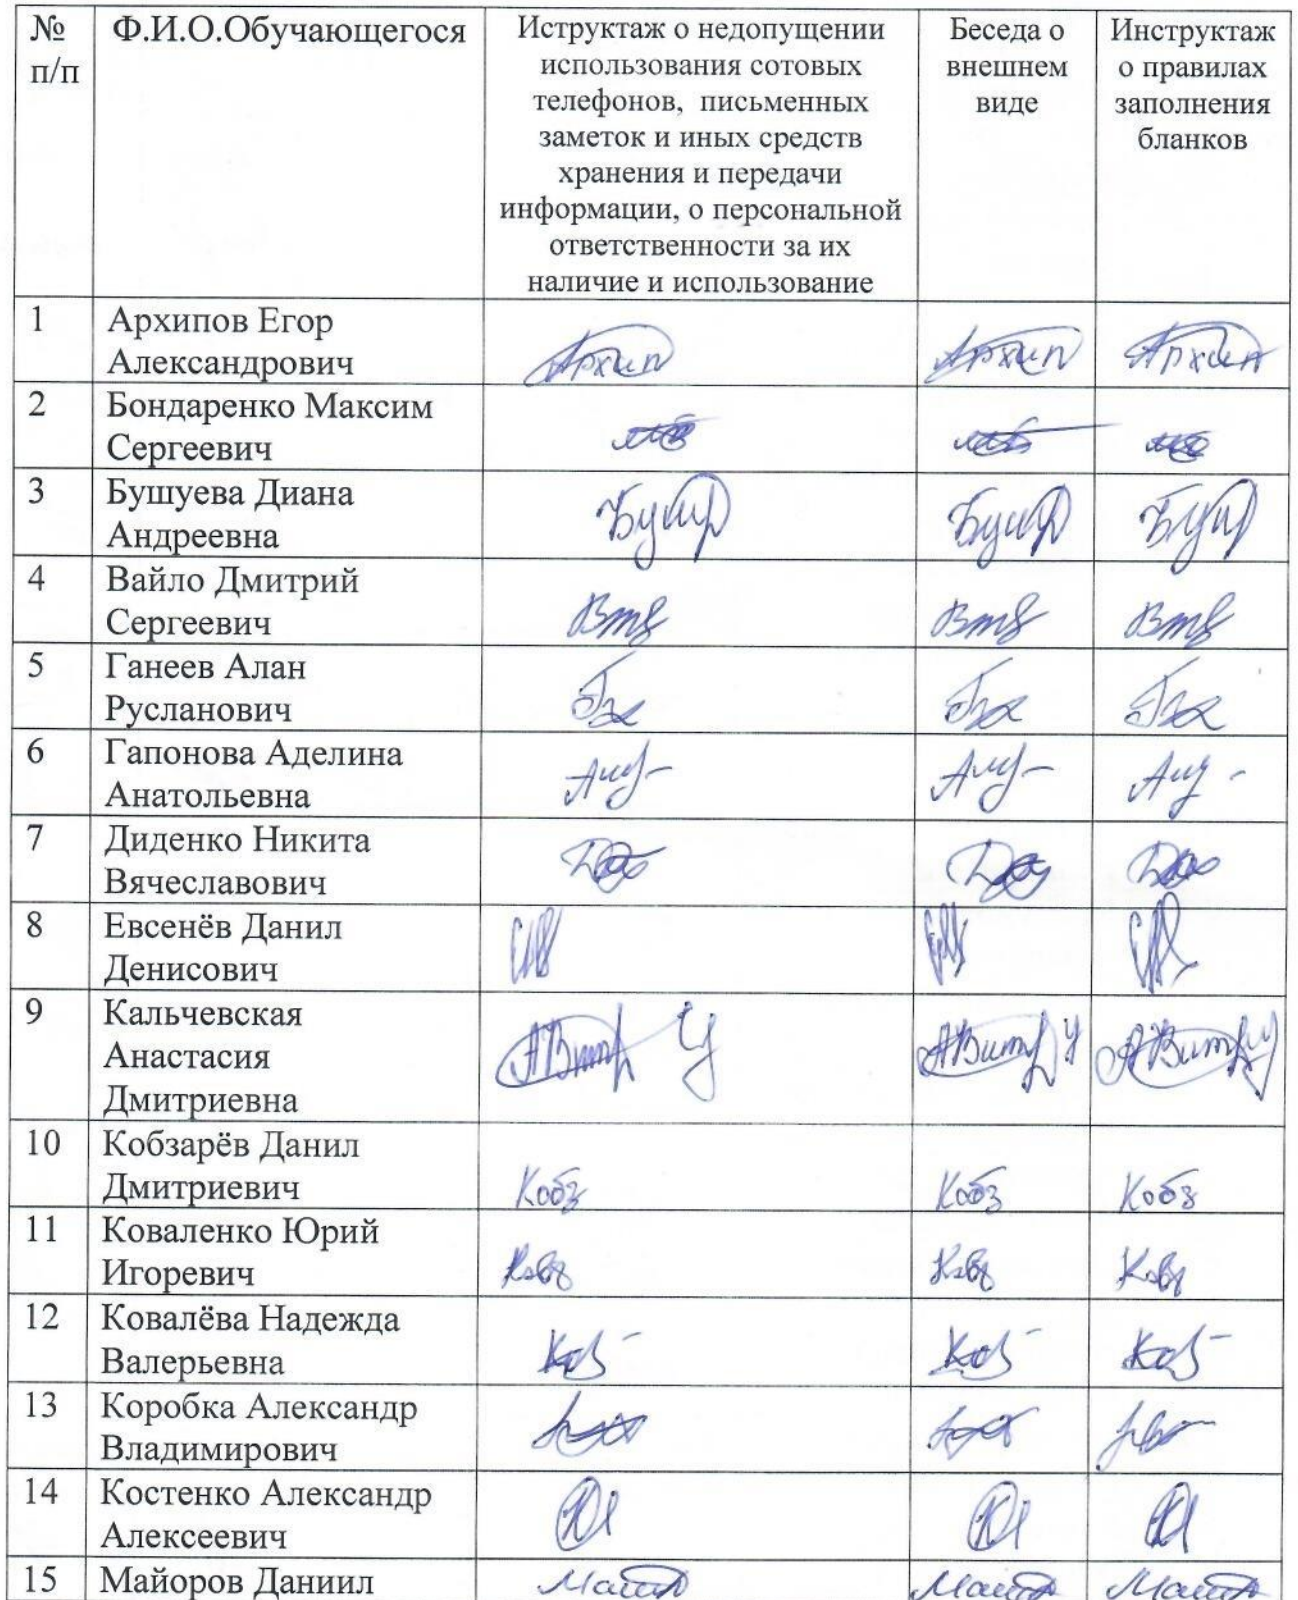 №
п/п
Ф.И.О.Обучающегося
Иструктаж о недопущении
использования сотовых
телефонов, письменных
заметок и иных средств
хранения и передачи
информации, о персональной
ответственности за их
наличие и использование
Беседа о
внешнем
виде
Инструктаж
о правилах
заполнения
бланков
1
Архипов Егор
Александрович
Архип Архип Архип
2
Бондаренко Максим
Сергеевич
3
Бушуева Диана
Андреевна
4
Вайло Дмитрий
Сергеевич
5
Ганеев Алан
Русланович
6
Гапонова Аделина
Анатольевна
7
Диденко Никита
Вячеславович
8
Евсенёв Данил
Денисович
9
Кальчевская
Анастасия
Дмитриевна
10
Кобзарёв Данил
Дмитриевич
Кобз Кобз Кобз
11
Коваленко Юрий
Игоревич
12
Ковалёва Надежда
Валерьевна
13
Коробка Александр
Владимирович
14
Костенко Александр
Алексеевич
15
Майоров Даниил